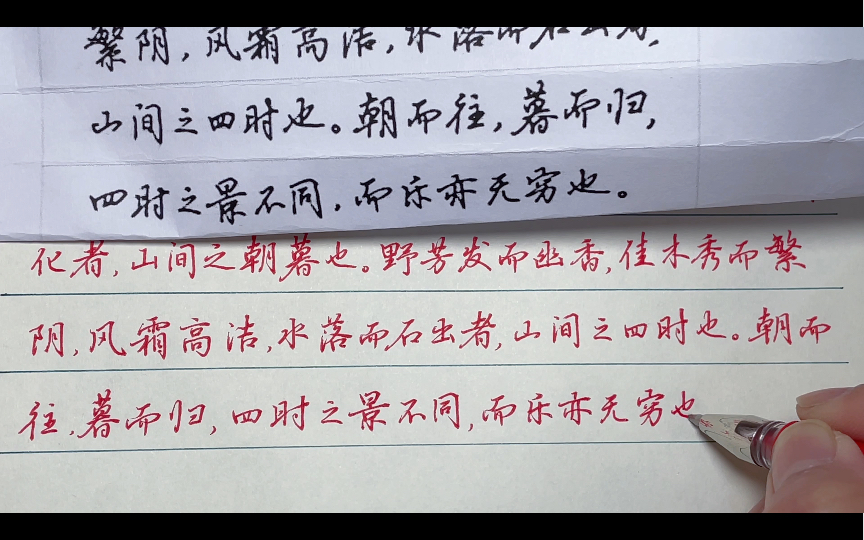 繁阴,风霜高洁,水落而石出者,
山间之四时也。朝而往,暮而归,
四时之景不同,而乐亦无穷也。
化者,山间之朝暮也。野芳发而幽香,佳木秀而繁
阴,风霜高洁,水落而石出者,山间之四时也。朝而
往,暮而归,四时之景不同,而乐亦无穷也